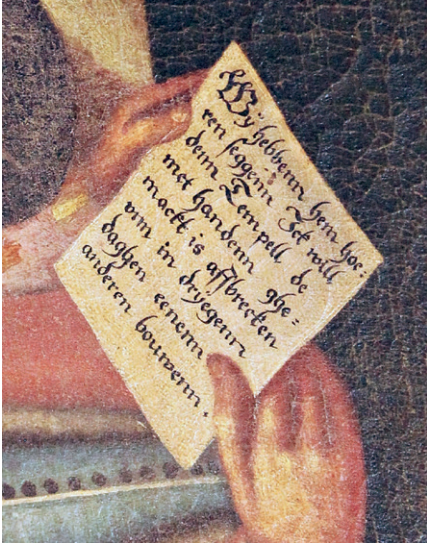 Wy hebbenn hem hoe:
ren seggenn Ick will
denn Tempell de
met handenn ghe=
mackt is affbrecken
vnn in dryegenn
daghen eenenn
anderen bouwenn.